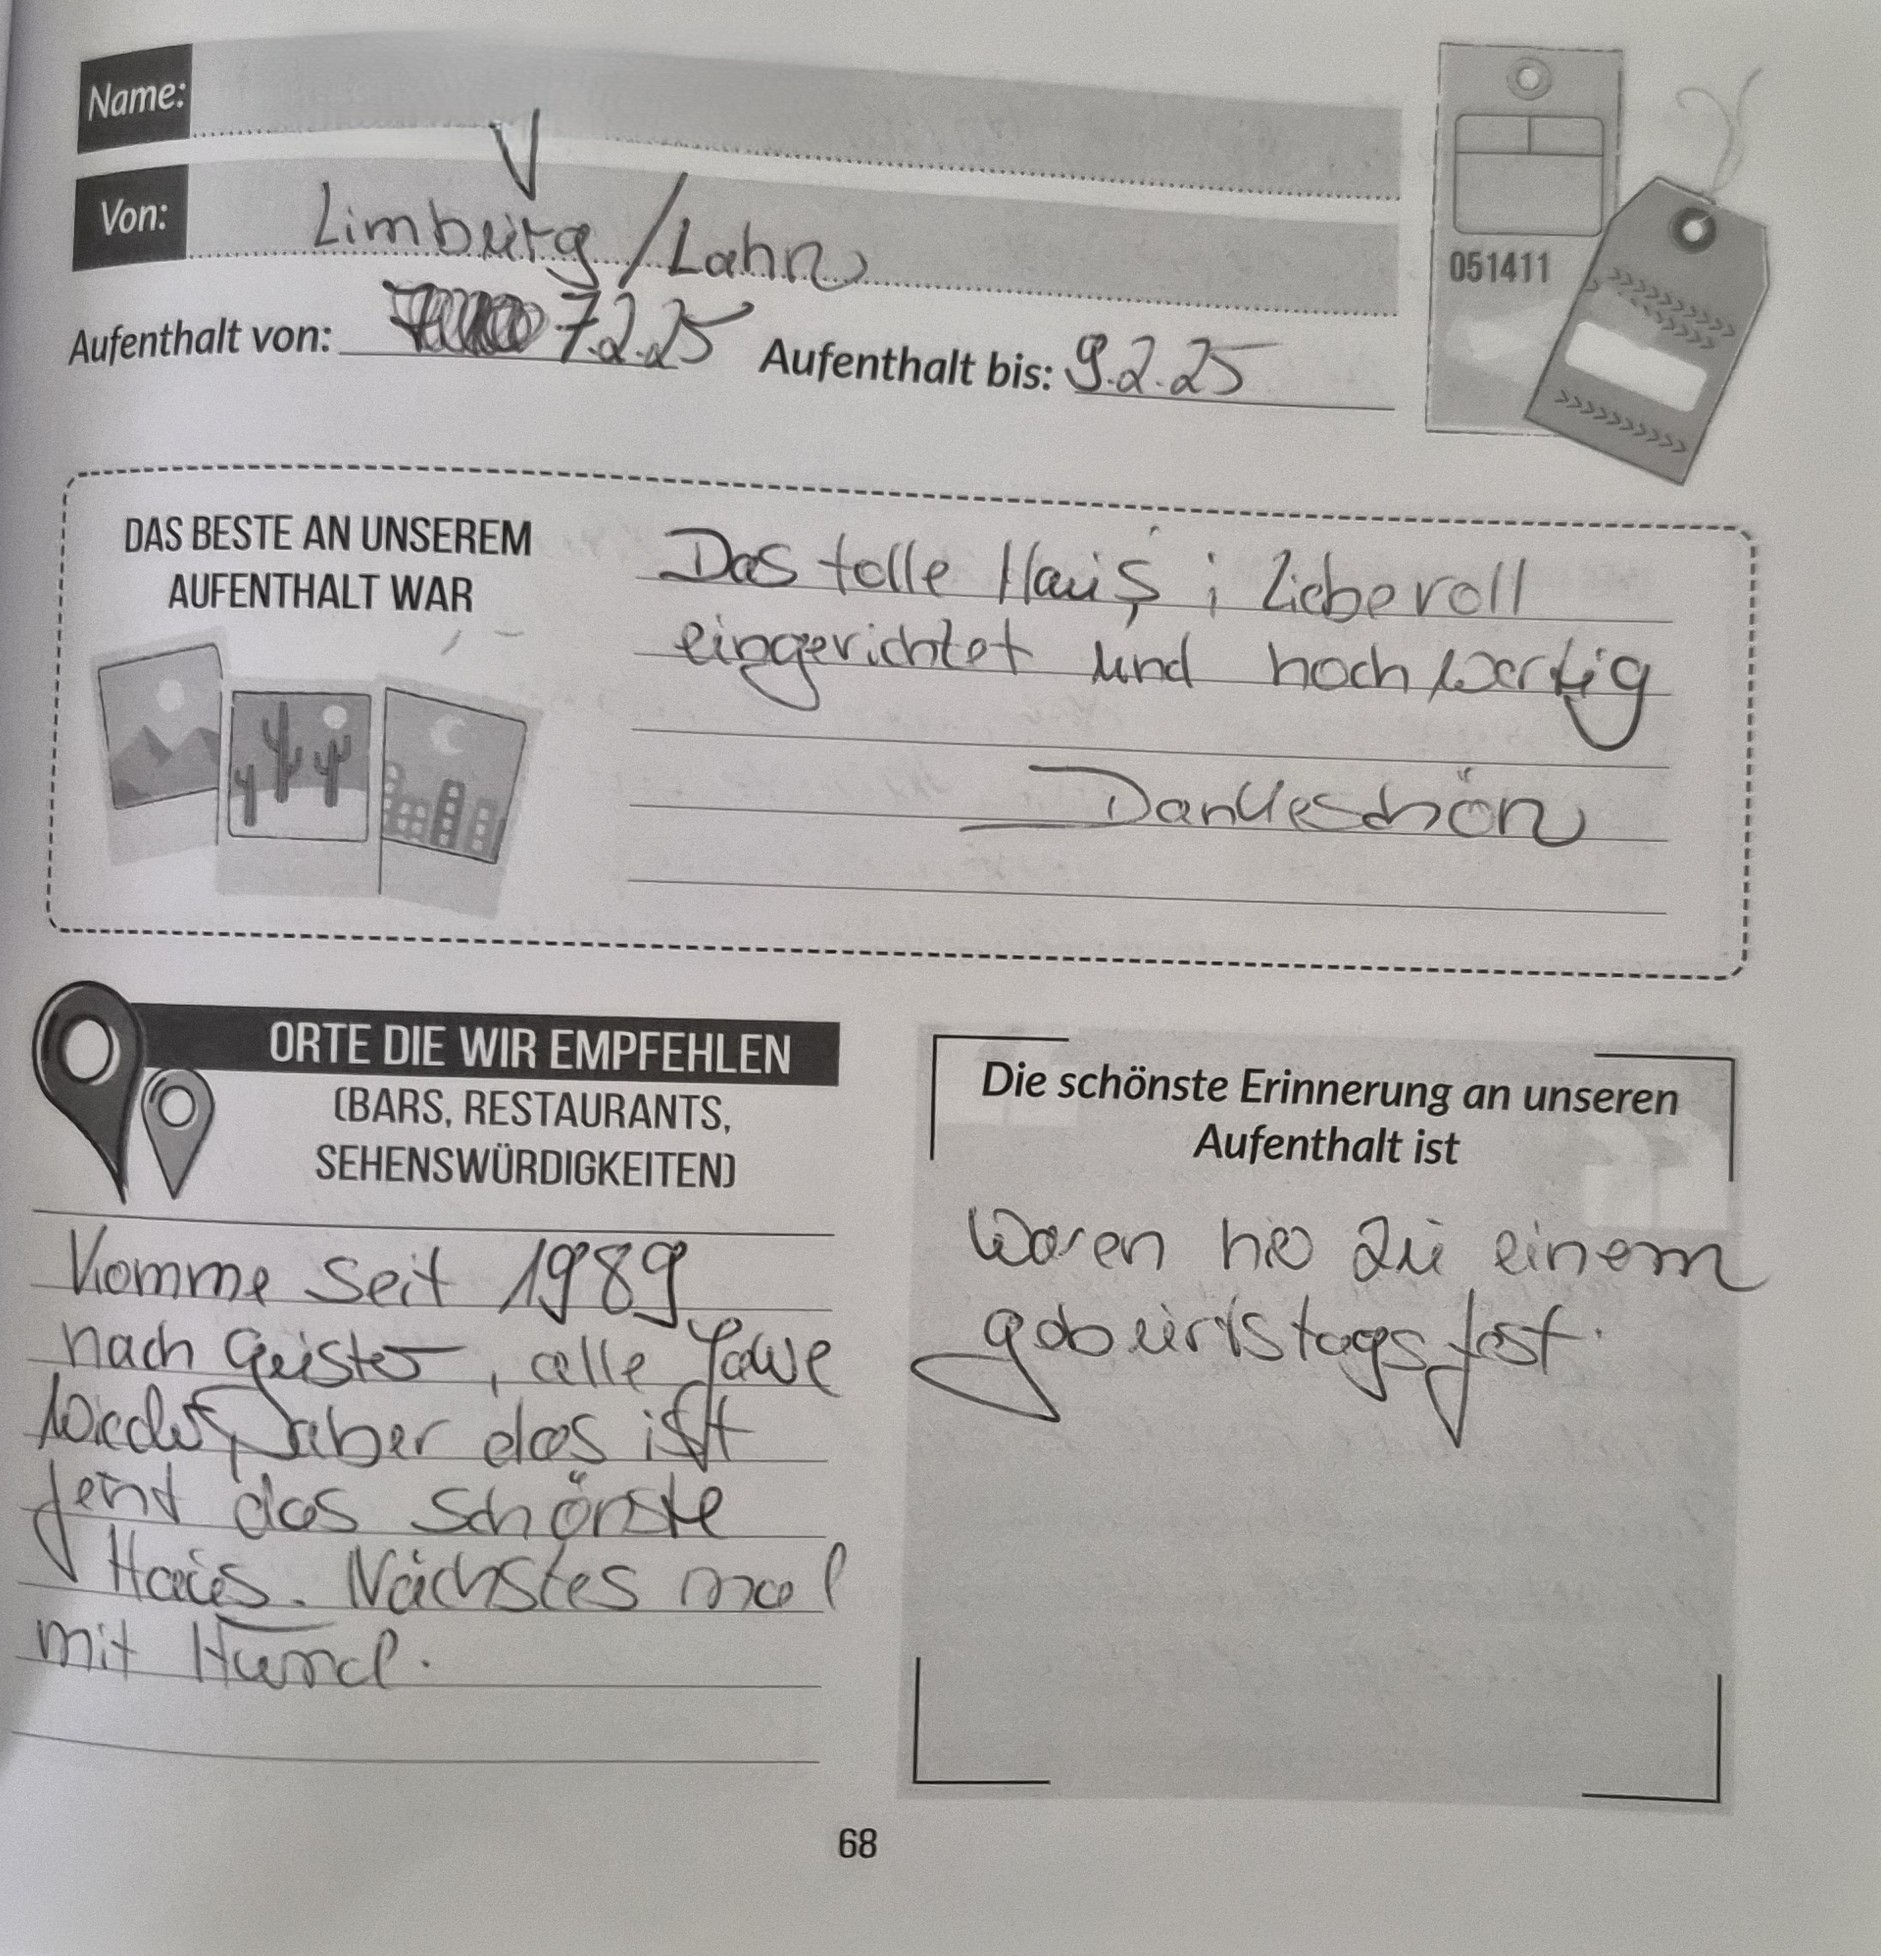 Name:
Von: Limburg/Lahn
Aufenthalt von: 7.2.25 Aufenthalt bis: 9.2.25
051411
DAS BESTE AN UNSEREM
AUFENTHALT WAR
Das tolle Haus; Liebevoll
eingerichtet und hochwertig
Dankeschön
ORTE DIE WIR EMPFEHLEN
(BARS, RESTAURANTS,
SEHENSWÜRDIGKEITEN)
Komme seit 1989
nach Geister, alle Jahre
wieder, aber das ist
jetzt das schönste
Haus. Nächstes mal
mit Hund.
Die schönste Erinnerung an unseren
Aufenthalt ist
Waren hier zu einem
geburtstagsfest.
68